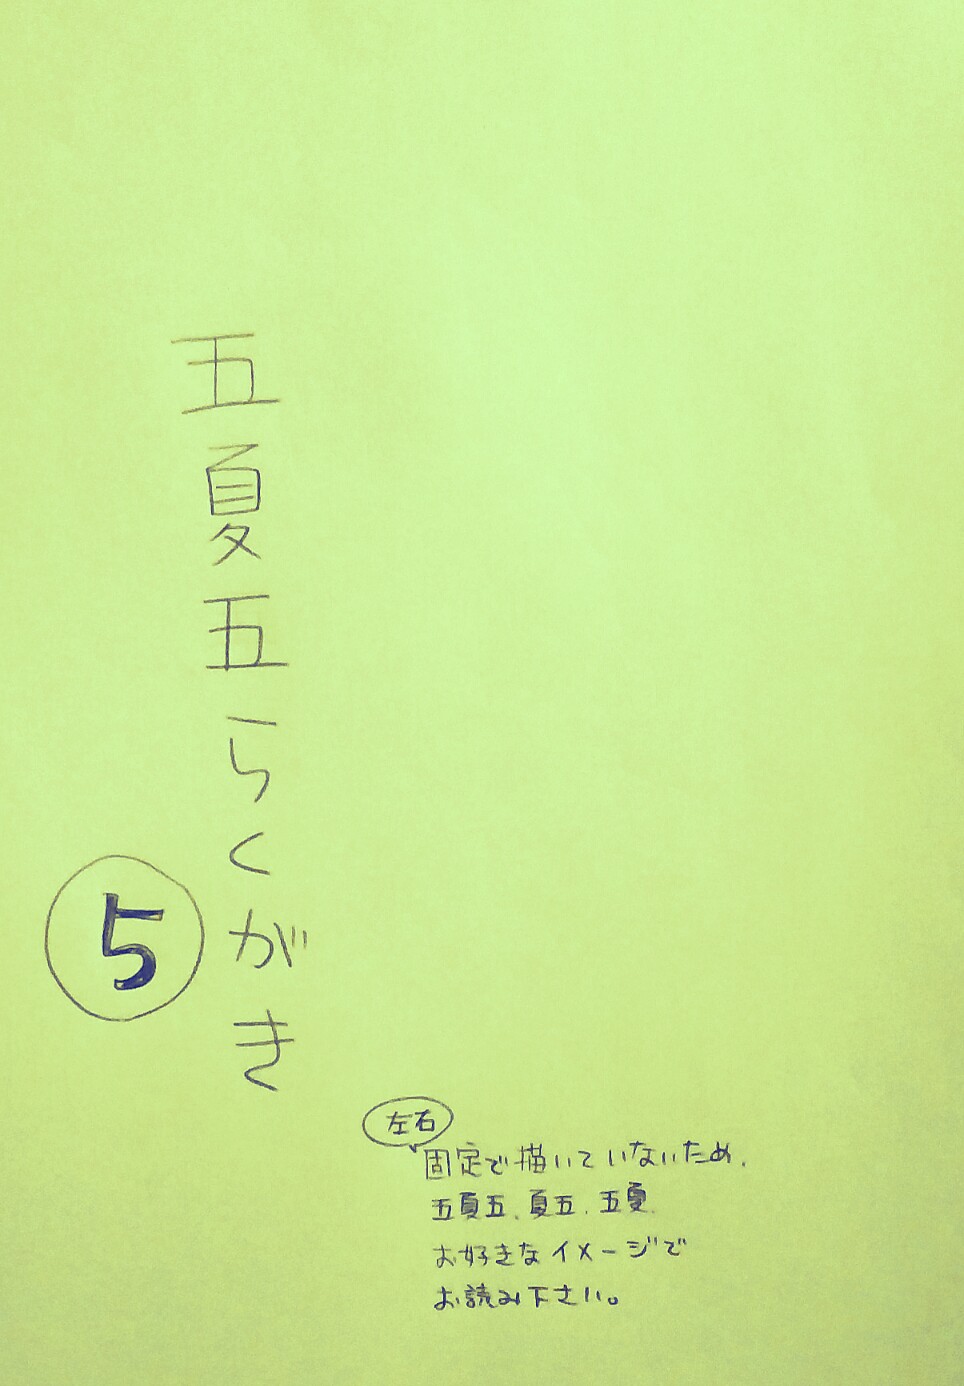 五夏五らくがき
5
左右
固定で描いていないため、
五夏五、夏五、五夏
お好きなイメージで
お読み下さい。